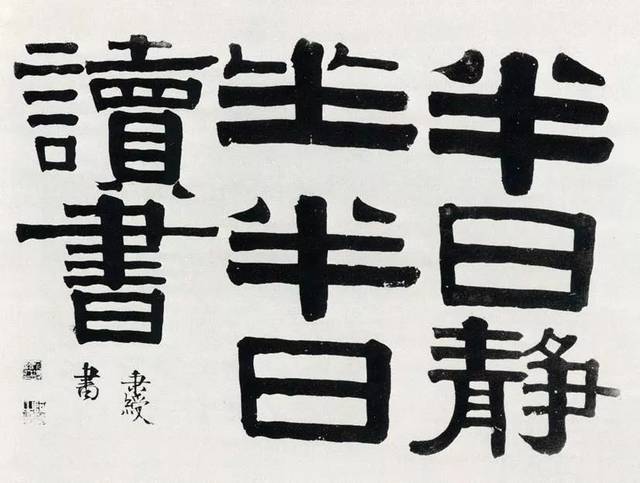 半日静
坐半日
讀書
秉綬
書